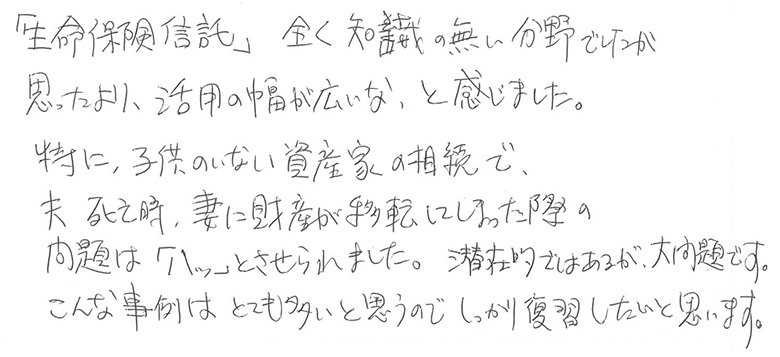 「生命保険信託」 全く知識の無い分野でしたが
思ったより、活用の幅が広いな、と感じました。
特に、子供のいない資産家の相続で、
夫死亡時、妻に財産が移転してしまった際の
問題は「ハッ」とさせられました。潜在的ではあるが、大問題です。
こんな事例はとても多いと思うのでしっかり復習したいと思います。